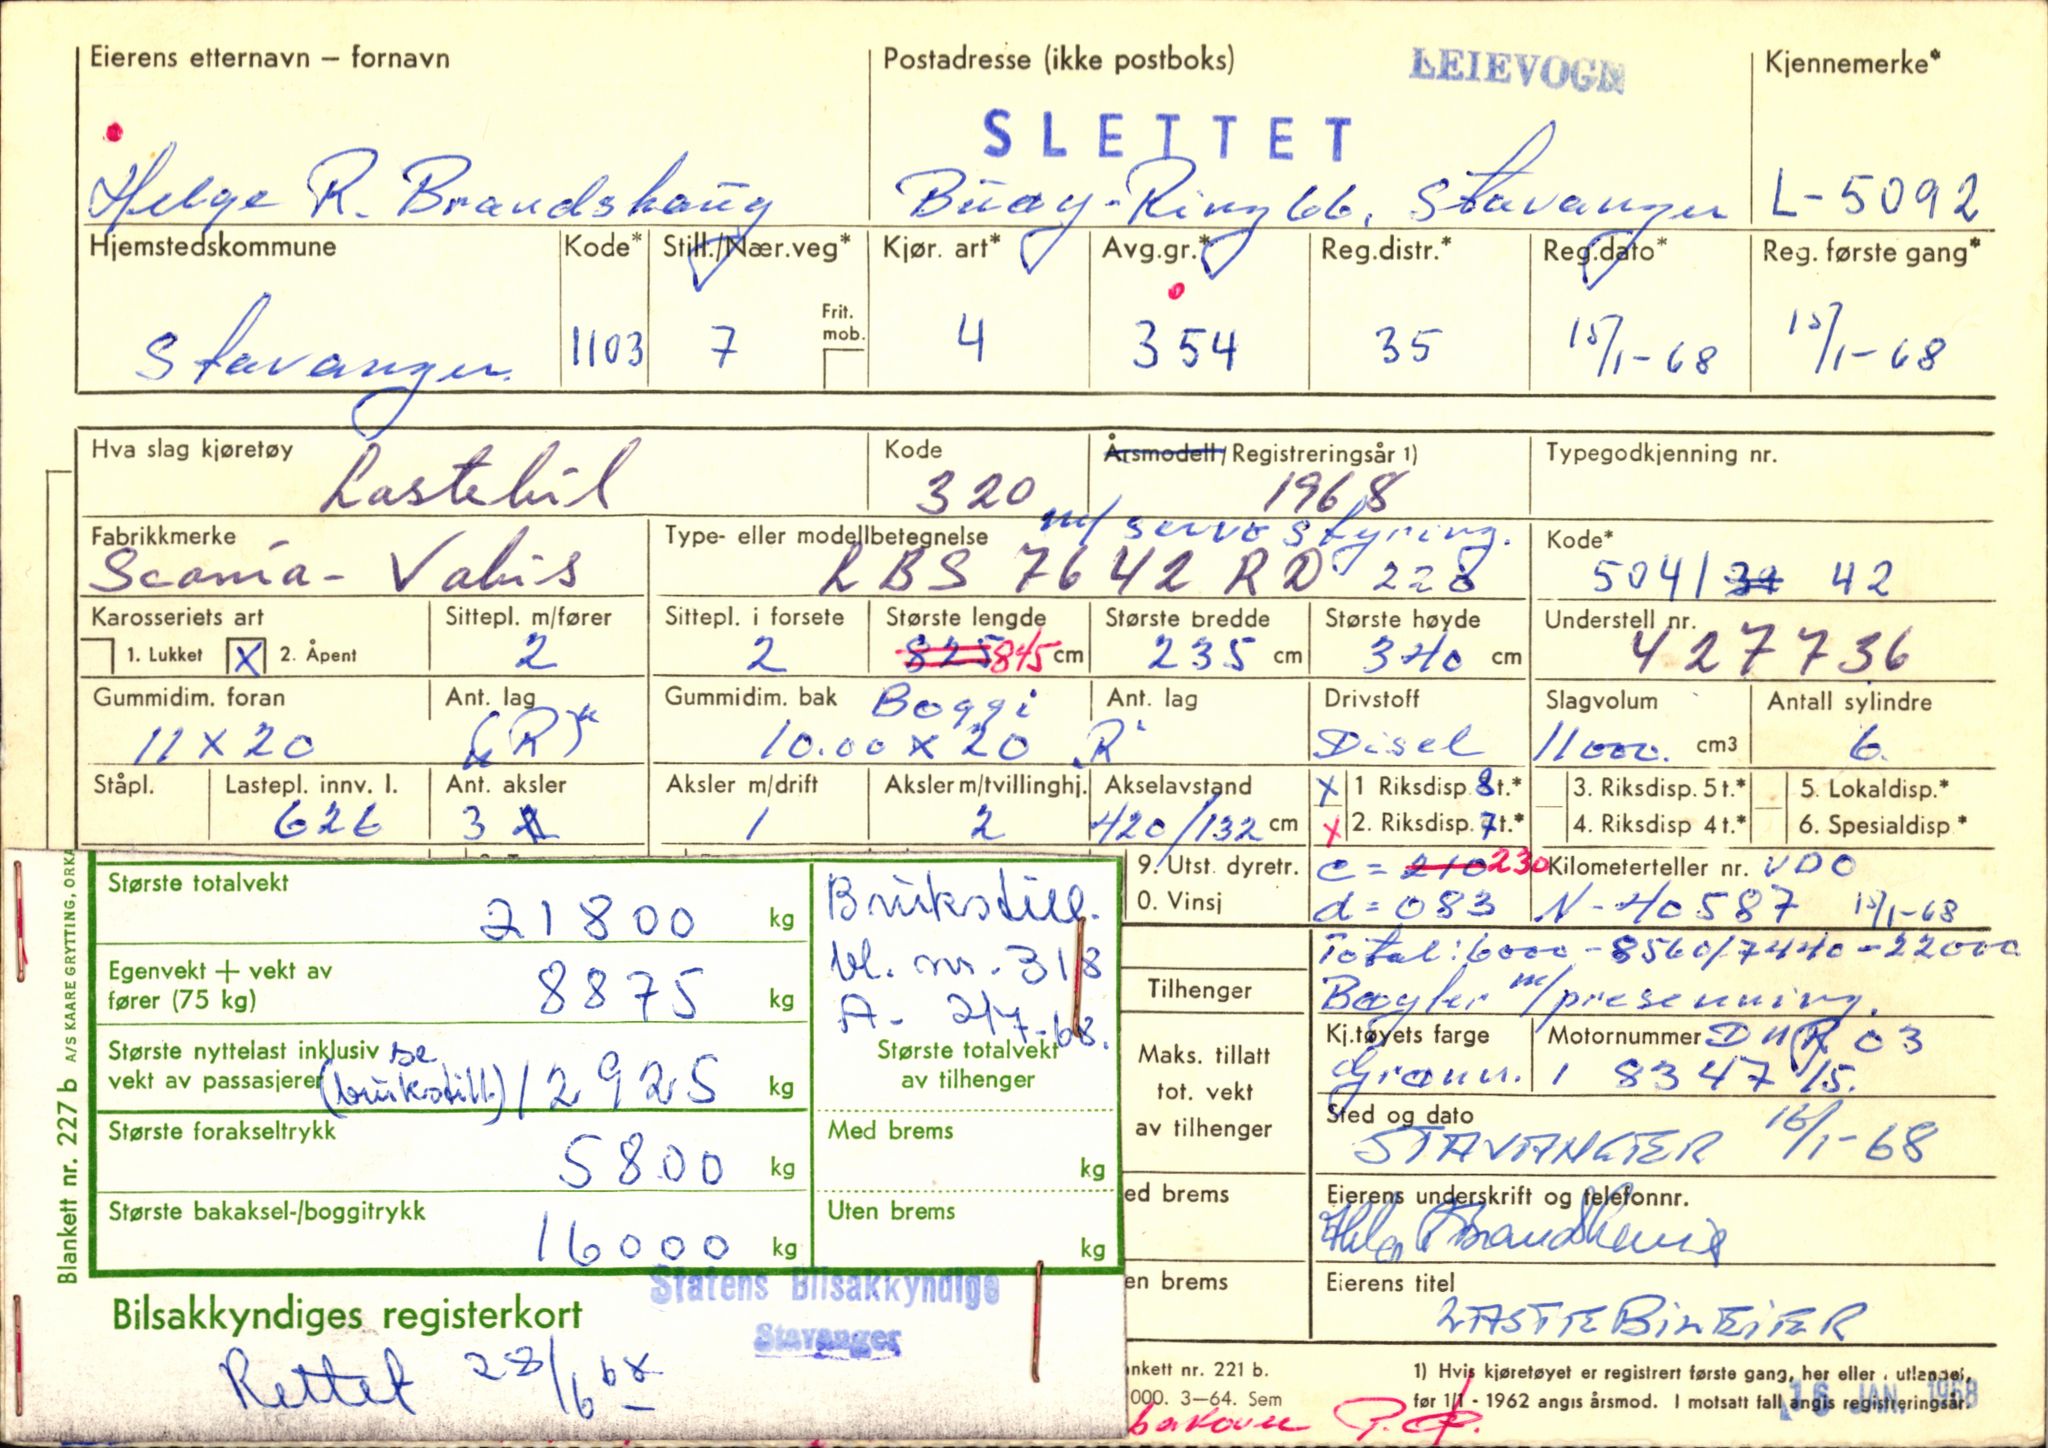 Eierens etternavn – fornavn
Postadresse (ikke postboks)
LEIEVOGN
Kjennemerke*
SLETTET
Helge R. Brandshaug
Buøy-Ring 66, Stavanger
L-5092
Hjemstedskommune
Kode*
Still./Nær.veg*
Kjør. art*
Avg.gr.*
Reg.distr.*
Reg.dato*
Reg. første gang*
Frit. mob.
Stavanger
1103
7
4
354
35
15/1-68
15/1-68
Hva slag kjøretøy
Kode
Årsmodell/Registreringsår 1)
Typegodkjenning nr.
Lastebil
320
1968
Fabrikkmerke
Type- eller modellbetegnelse
m/servostyring.
Kode*
Scania-Vabis
LBS 7642 RD 228
504/39 42
Karosseriets art
Sittepl. m/fører
Sittepl. i forsete
Største lengde
Største bredde
Største høyde
Understell nr.
1. Lukket
X 2. Åpent
2
2
825 845 cm
235 cm
340 cm
427736
Gummidim. foran
Ant. lag
Gummidim. bak
Boggi
Ant. lag
Drivstoff
Slagvolum
Antall sylindre
11 x 20
(R)
10.00 x 20
R
Disel
11000. cm3
6.
Ståpl.
Lastepl. innv. l.
Ant. aksler
Aksler m/drift
Aksler m/tvillinghj.
Akselavstand
x 1 Riksdisp. 8 t.*
3. Riksdisp. 5 t.*
5. Lokaldisp.*
626
3
1
2
420/132 cm
x 2. Riksdisp. 7 t.*
4. Riksdisp 4 t.*
6. Spesialdisp*
9. Utst. dyretr.
0. Vinsj
c = 210 230
d = 083
Kilometerteller nr. VDO
N-40587 15/1-68
Største totalvekt
21800 kg
Brukstill.
bl. nr. 318
A- 2/7-68.
Egenvekt + vekt av
fører (75 kg)
8875 kg
Største nyttelast inklusiv
vekt av passasjerer
se
(bruksttill.)
12925 kg
Største totalvekt
av tilhenger
Største forakseltrykk
5800 kg
Med brems
kg
Største bakaksel-/boggitrykk
16000 kg
Uten brems
kg
Blankett nr. 227 b A/S KAARE GRYTTING, ORKA
Bilsakkyndiges registerkort
Statens Bilsakkyndige
Stavanger
Rettet 28/6 68
Total: 6000 - 8560/7440 = 22000
Tilhenger
Bøyler m/presenning.
Maks. tillatt
tot. vekt
av tilhenger
Kj.tøyets farge
Grønn.
Motornummer D11R 03
1 8347 15.
Sted og dato
STAVANGER 16/1-68
ed brems
Eierens underskrift og telefonnr.
en brems
Eierens titel
LASTEBILEIER
nkett nr. 221 b.
000. 3–64. Sem
1) Hvis kjøretøyet er registrert første gang, her eller i utlandet,
før 1/1 - 1962 angis årsmod. I motsatt fall angis registreringsår.
16 JAN. 1968